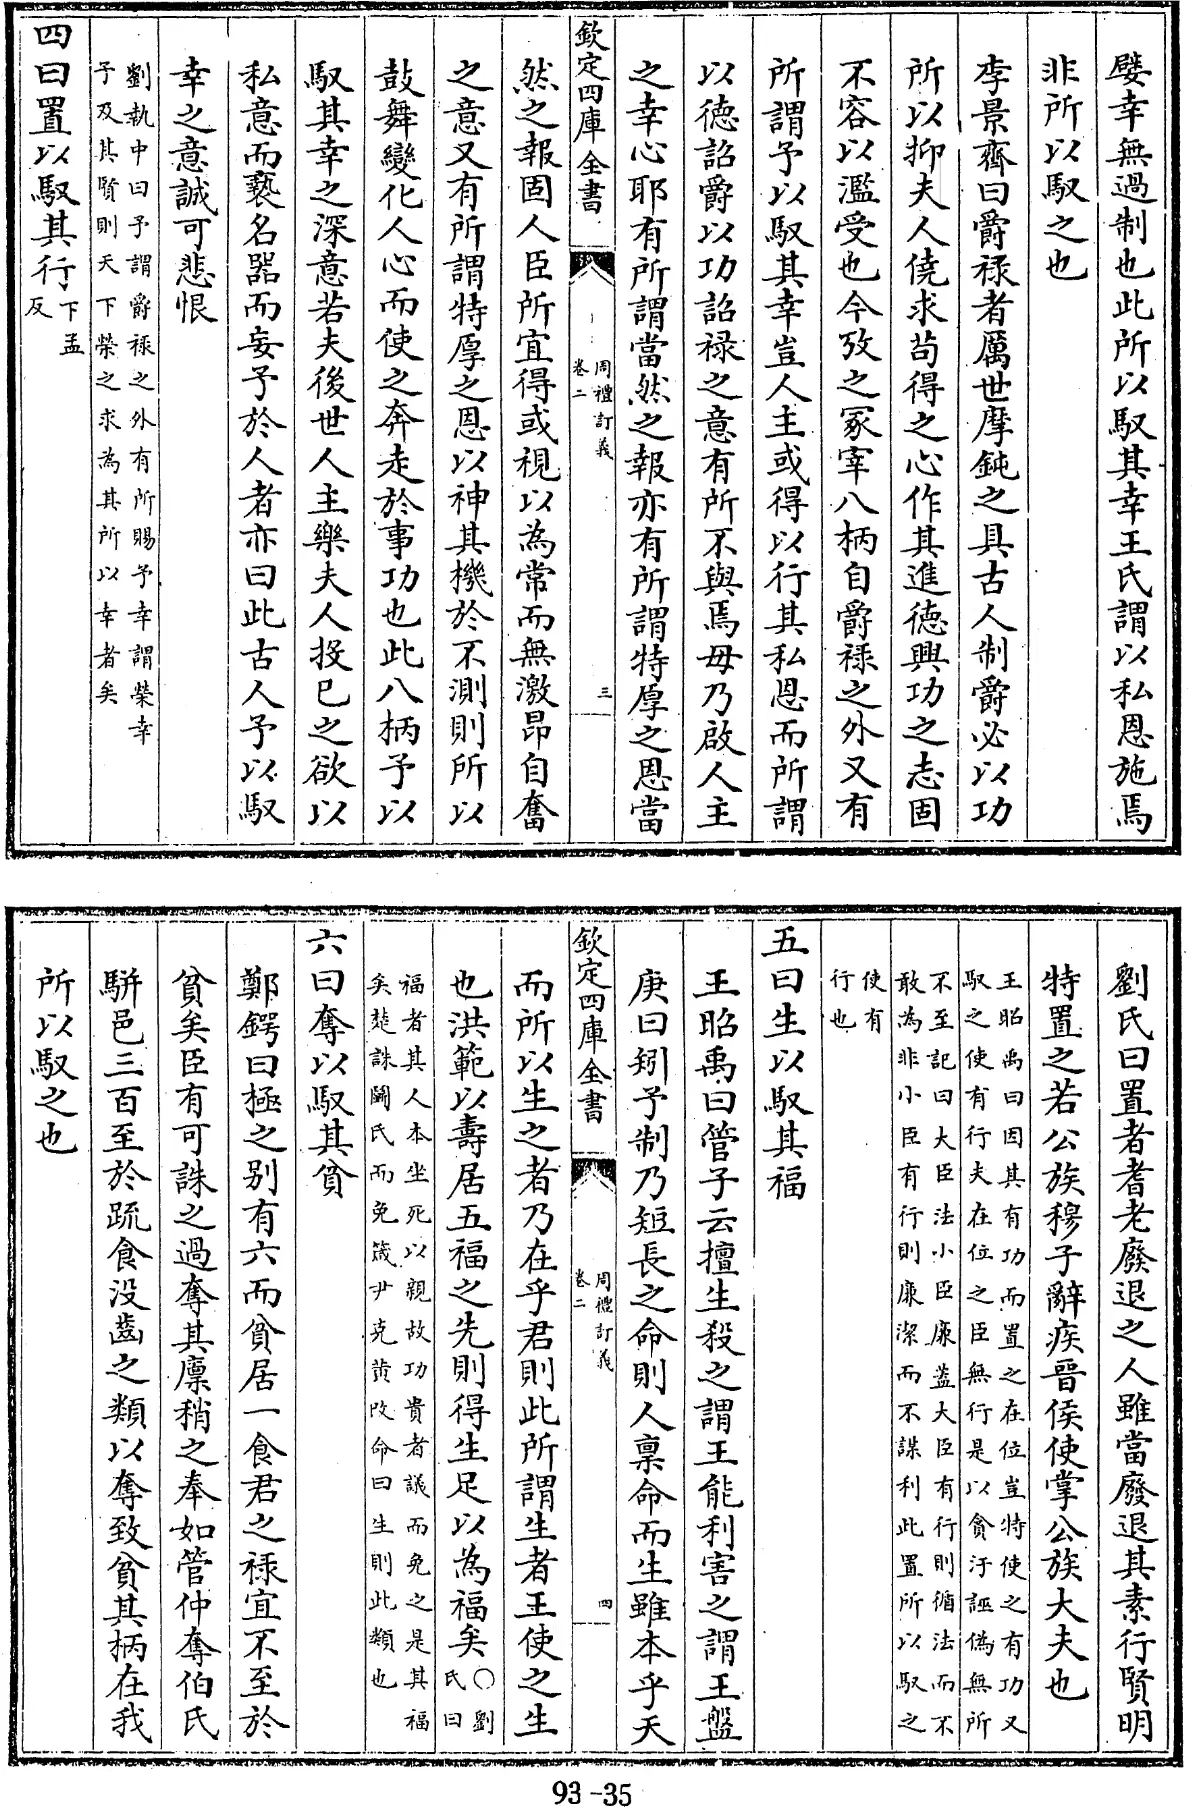 嬖幸無過制也此所以馭其幸王氏謂以私恩施焉
非所以馭之也
李景齊曰爵祿者厲世摩鈍之具古人制爵必以功
所以抑夫人僥求苟得之心作其進德興功之志固
不容以濫受也今攷之冢宰八柄自爵祿之外又有
所謂予以馭其幸豈人主或得以行其私恩而所謂
以德詔爵以功詔祿之意有所不與焉毋乃啟人主
之幸心耶有所謂當然之報亦有所謂特厚之恩當
欽定四庫全書
周禮訂義
卷二
三
然之報固人臣所宜得或視以為常而無激昂自奮
之意又有所謂特厚之恩以神其機於不測則所以
鼓舞變化人心而使之奔走於事功也此八柄予以
馭其幸之深意若夫後世人主樂夫人投已之欲以
私意而褻名器而妄予於人者亦曰此古人予以馭
幸之意誠可悲恨
劉執中曰予謂爵祿之外有所賜予幸謂榮幸
予及其賢則天下榮之求為其所以幸者矣
四曰置以馭其行下孟
反
劉氏曰置者耆老廢退之人雖當廢退其素行賢明
特置之若公族穆子辭疾晉侯使掌公族大夫也
王昭禹曰因其有功而置之在位豈特使之有功又
馭之使有行夫在位之臣無行是以貪汙誣偽無所
不至記曰大臣法小臣廉蓋大臣有行則循法而不
敢為非小臣有行則廉潔而不謀利此置所以馭之
使有
行也
五曰生以馭其福
王昭禹曰管子云擅生殺之謂王能利害之謂王盤
庚曰矧予制乃短長之命則人禀命而生雖本乎天
欽定四庫全書
周禮訂義
卷二
四
而所以生之者乃在乎君則此所謂生者王使之生
也洪範以壽居五福之先則得生足以為福矣○劉
氏曰
福者其人本坐死以親故功貴者議而免之是其福
矣楚誅鬭氏而免箴尹克黄改命曰生則此類也
六曰奪以馭其貧
鄭鍔曰極之别有六而貧居一食君之祿宜不至於
貧矣臣有可誅之過奪其廪稍之奉如管仲奪伯氏
駢邑三百至於疏食没齒之類以奪致貧其柄在我
所以馭之也
93-35